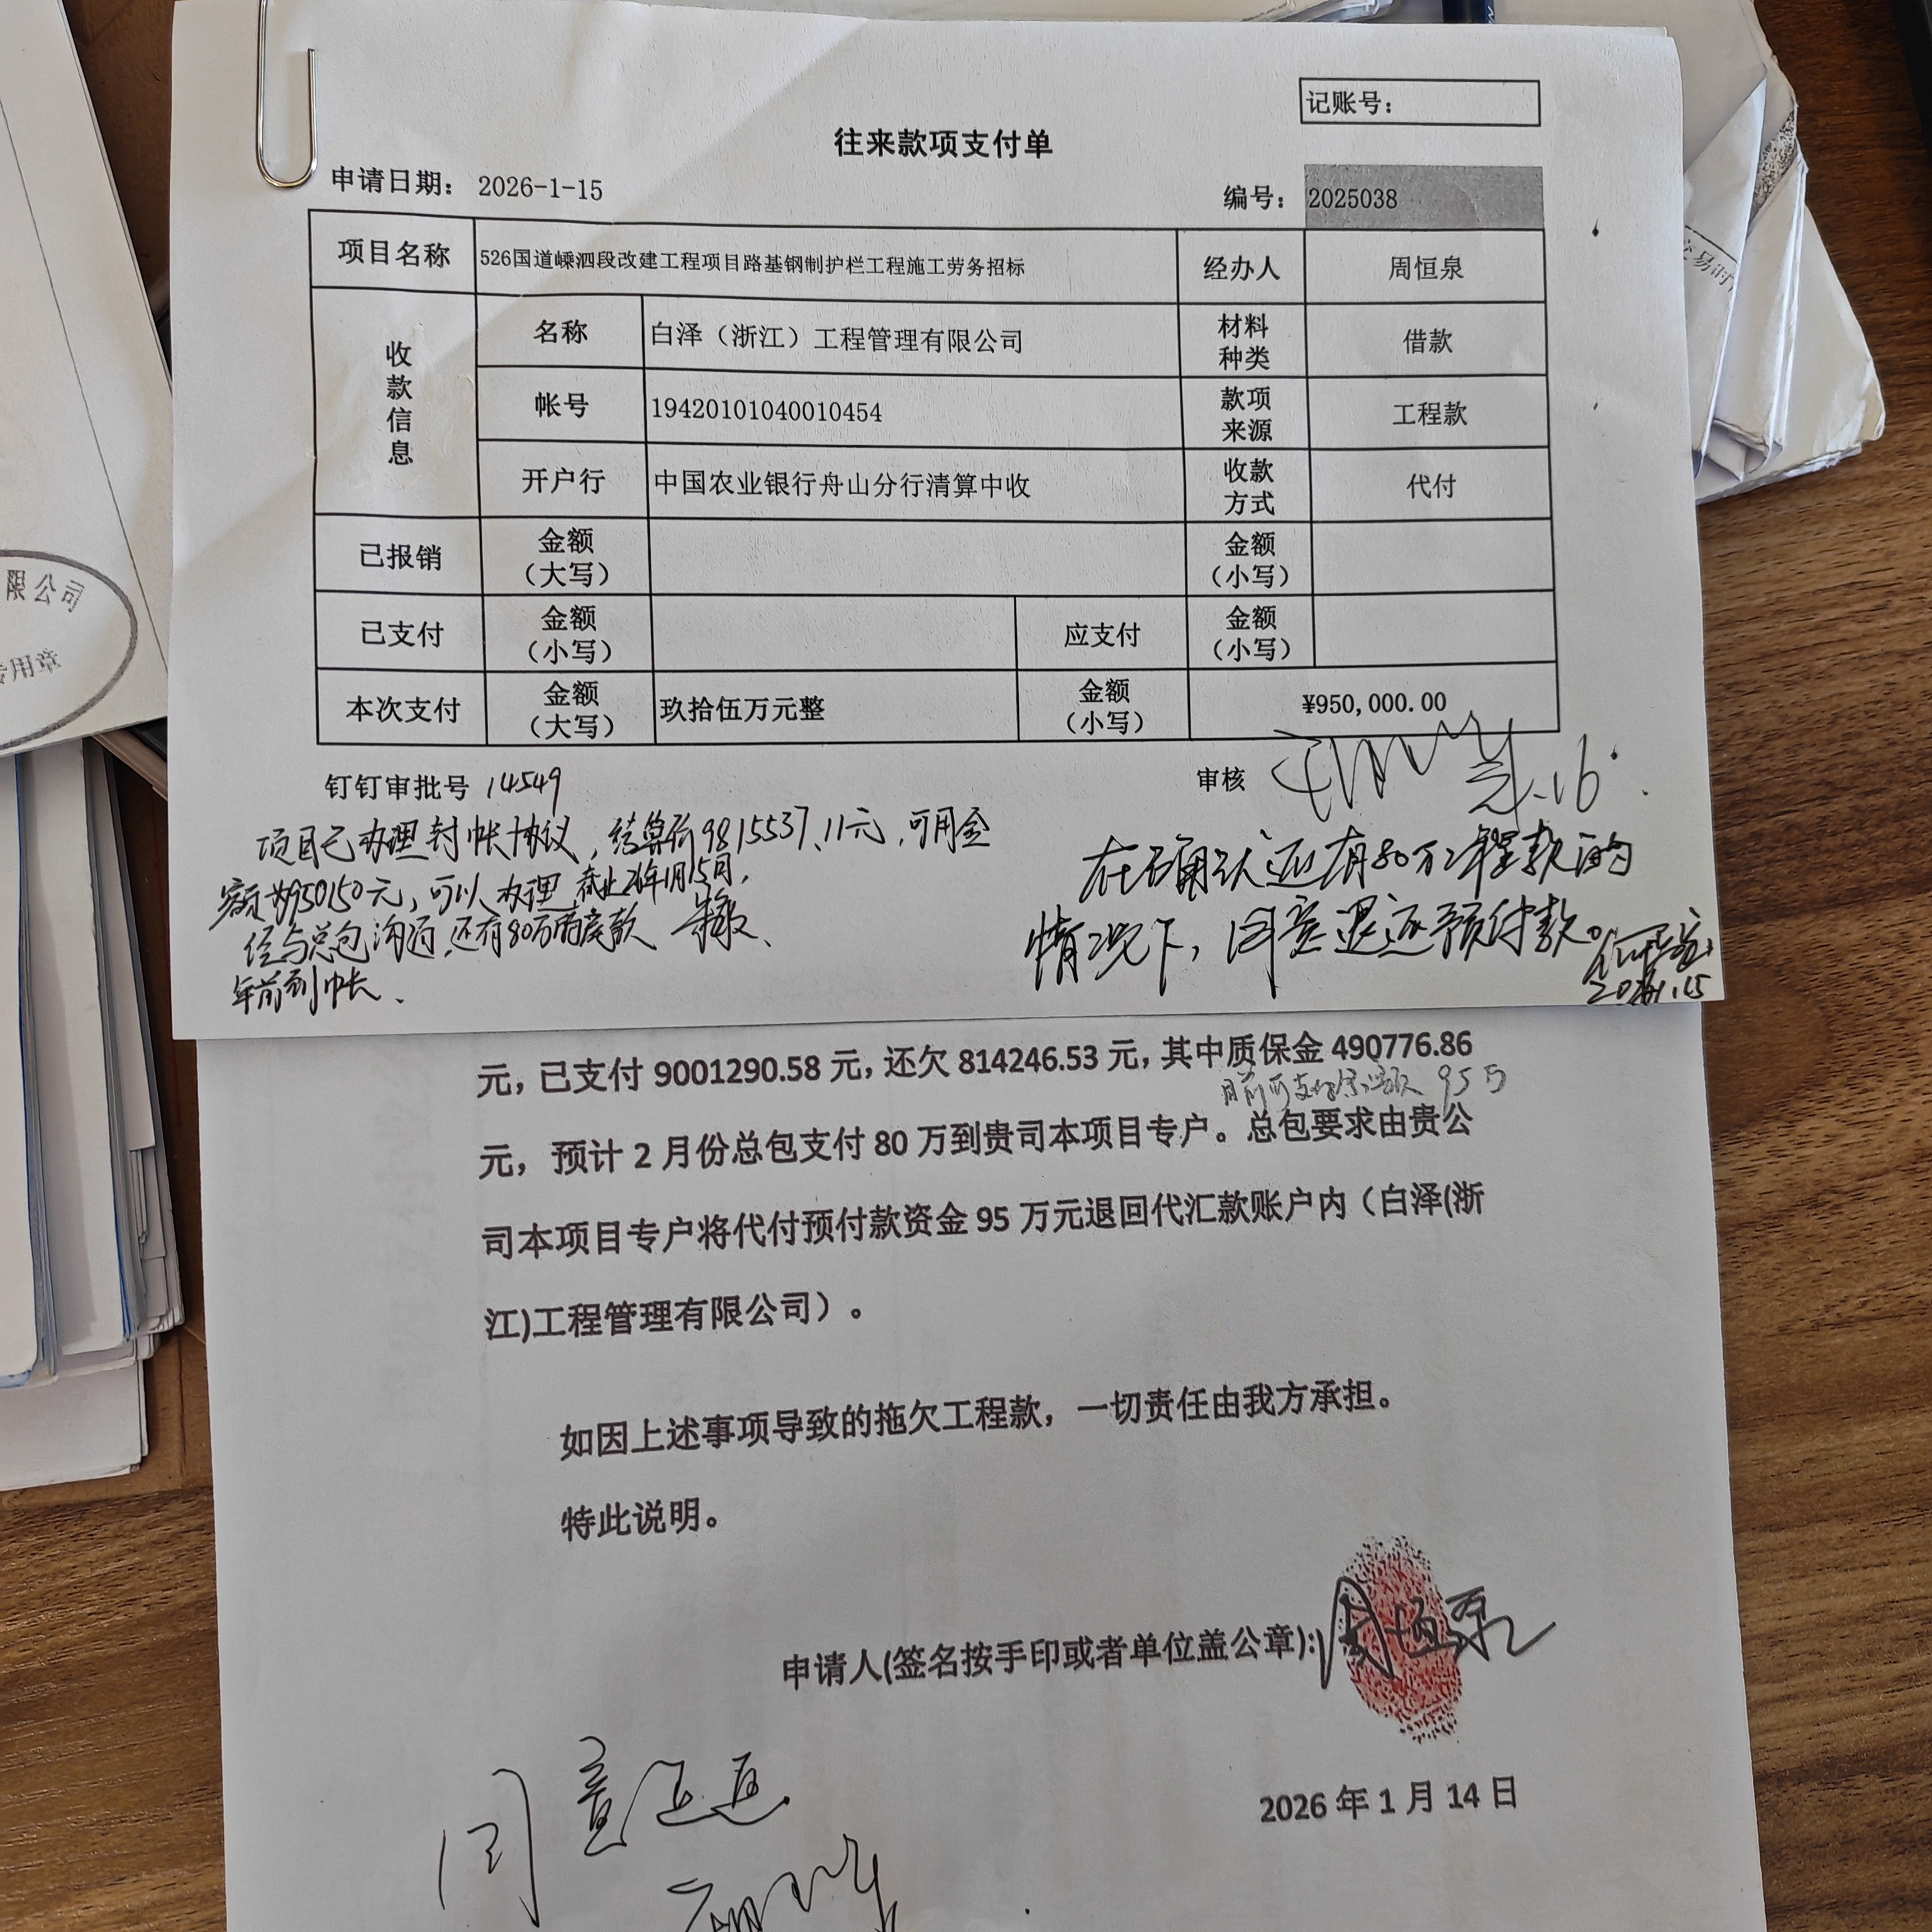 记账号：
往来款项支付单
申请日期： 2026-1-15 编号： 2025038
项目名称 526国道嵊泗段改建工程项目路基钢制护栏工程施工劳务招标 经办人 周恒泉
收款信息 名称 白泽（浙江）工程管理有限公司 材料种类 借款
帐号 19420101040010454 款项来源 工程款
开户行 中国农业银行舟山分行清算中收 收款方式 代付
已报销 金额（大写） 金额（小写）
已支付 金额（小写） 应支付 金额（小写）
本次支付 金额（大写） 玖拾伍万元整 金额（小写） ¥950,000.00
钉钉审批号 14549 审核
项目已办理封帐协议，结算价9815537.11元，可用金
额为950150元，可以办理，截止26年1月15日，
经与总包沟通，还有80万
年前到帐、
在确认还有80万工程款的
情况下，同意退还预付款。
2026.1.15
元，已支付 9001290.58 元，还欠 814246.53 元，其中质保金 490776.86
目前可支付 95万
元， 预计 2 月份总包支付 80 万到贵司本项目专户。总包要求由贵公
司本项目专户将代付预付款资金 95 万元退回代汇款账户内（白泽(浙
江)工程管理有限公司）。
如因上述事项导致的拖欠工程款，一切责任由我方承担。
特此说明。
申请人(签名按手印或者单位盖公章): 周恒泉
2026 年 1 月 14 日
同意
限公司
专用章